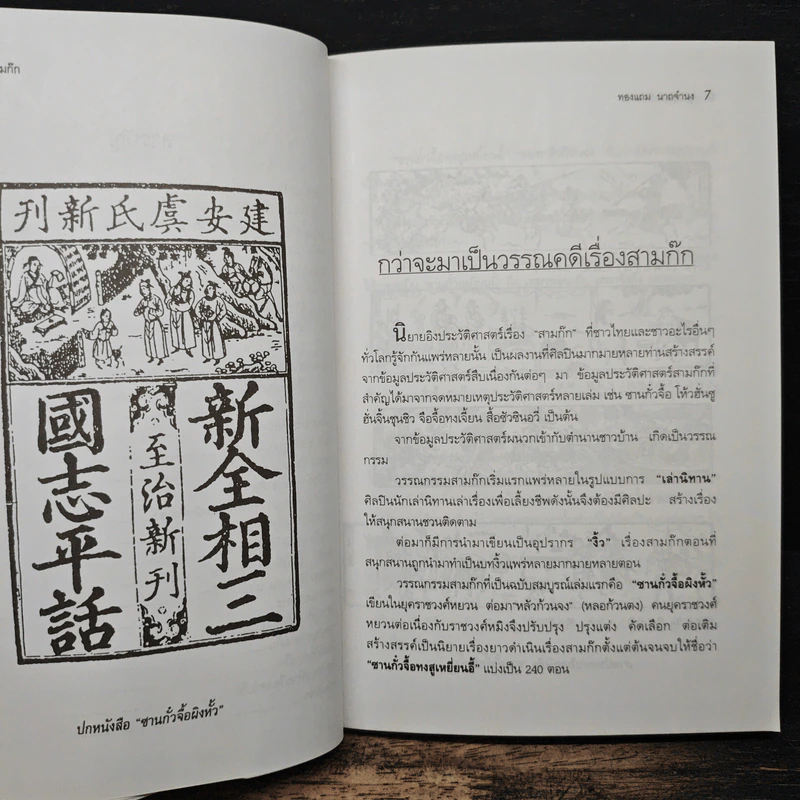 มก๊ก
建安虞氏新刊
新全相三
至治新刊
國志平話
ปกหนังสือ “ซานกั๋วจื้อผิงหั้ว”
ทองแถม นาถจำนง 7
กว่าจะมาเป็นวรรณคดีเรื่องสามก๊ก
นิยายอิงประวัติศาสตร์เรื่อง “สามก๊ก” ที่ชาวไทยและชาวอะไรอื่นๆ
ทั่วโลกรู้จักกันแพร่หลายนั้น เป็นผลงานที่ศิลปินมากมายหลายท่านสร้างสรรค์
จากข้อมูลประวัติศาสตร์สืบเนื่องกันต่อๆ มา ข้อมูลประวัติศาสตร์สามก๊กที่
สำคัญได้มาจากจดหมายเหตุประวัติศาสตร์หลายเล่ม เช่น ซานกั๋วจื้อ โห้วฮั่นซู
ฮั่นจิ้นชุนชิว จือจื้อทงเจี้ยน สื้อชัวซินอวี่ เป็นต้น
จากข้อมูลประวัติศาสตร์ผนวกเข้ากับตำนานชาวบ้าน เกิดเป็นวรรณ
กรรม
วรรณกรรมสามก๊กเริ่มแรกแพร่หลายในรูปแบบการ “เล่านิทาน”
ศิลปินนักเล่านิทานเล่าเรื่องเพื่อเลี้ยงชีพดังนั้นจึงต้องมีศิลปะ สร้างเรื่อง
ให้สนุกสนานชวนติดตาม
ต่อมาก็มีการนำมาเขียนเป็นอุปรากร “งิ้ว” เรื่องสามก๊กตอนที่
สนุกสนานถูกนำมาทำเป็นบทงิ้วแพร่หลายมากมายหลายตอน
วรรณกรรมสามก๊กที่เป็นฉบับสมบูรณ์เล่มแรกคือ “ซานกั๋วจื้อผิงหั้ว”
เขียนในยุคราชวงศ์หยวน ต่อมา“หลัวก้วนจง” (หลอก้วนตง) คนยุคราชวงศ์
หยวนต่อเนื่องกับราชวงศ์หมิงจึงปรับปรุง ปรุงแต่ง คัดเลือก ต่อเติม
สร้างสรรค์เป็นนิยายเรื่องยาวดำเนินเรื่องสามก๊กตั้งแต่ต้นจนจบให้ชื่อว่า
“ซานกั๋วจื้อทงสูเหยี่ยนอี้” แบ่งเป็น 240 ตอน